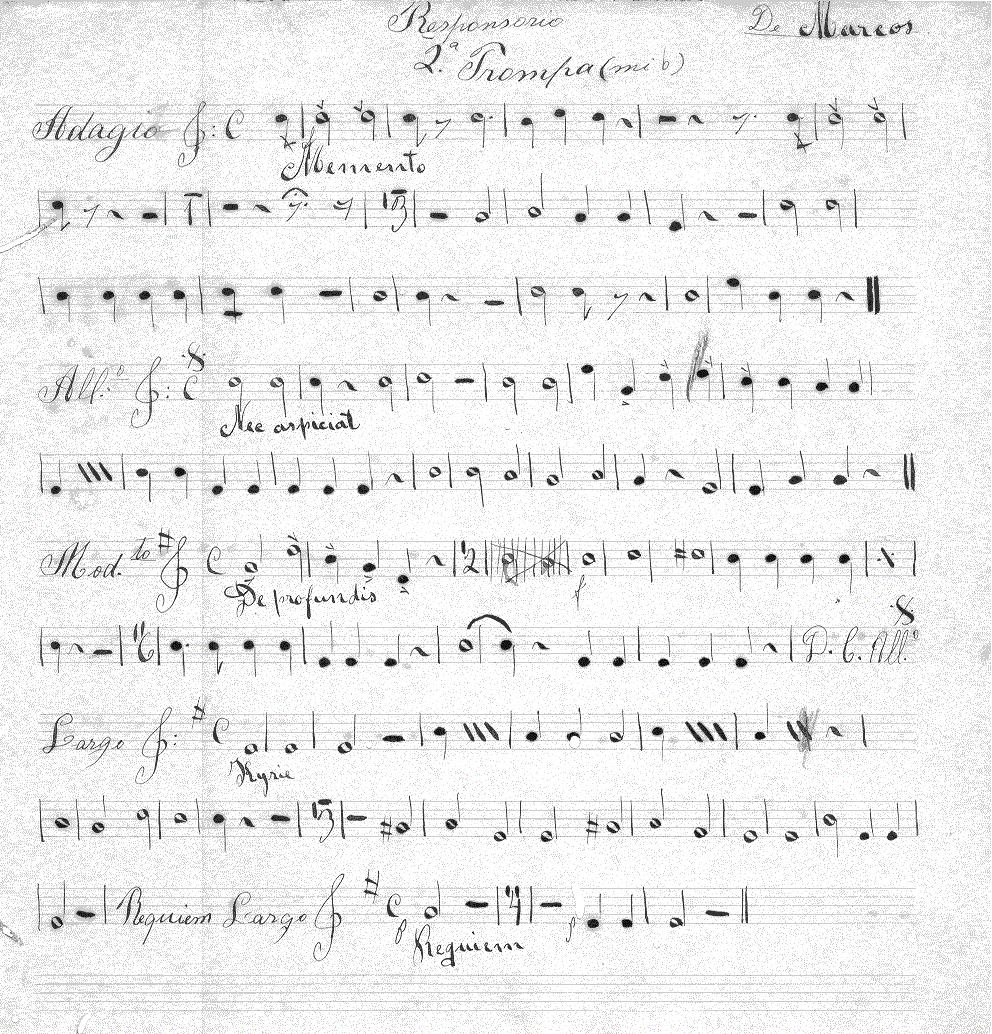 Responsorio De Marcos
2.ª Trompa (mi b)
Adagio
Memento
13
All.º
Nec aspiciat
Mod.to
2
De profundis
f
6
D. C. All.º
Largo
Kyrie
13
Requiem Largo
p
4
p
Requiem